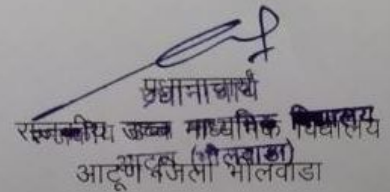 प्रधानाचार्य
राजकीय उच्च माध्यमिक विद्यालय
आटूण (भीलवाडा)
आटूण जिला भीलवाडा